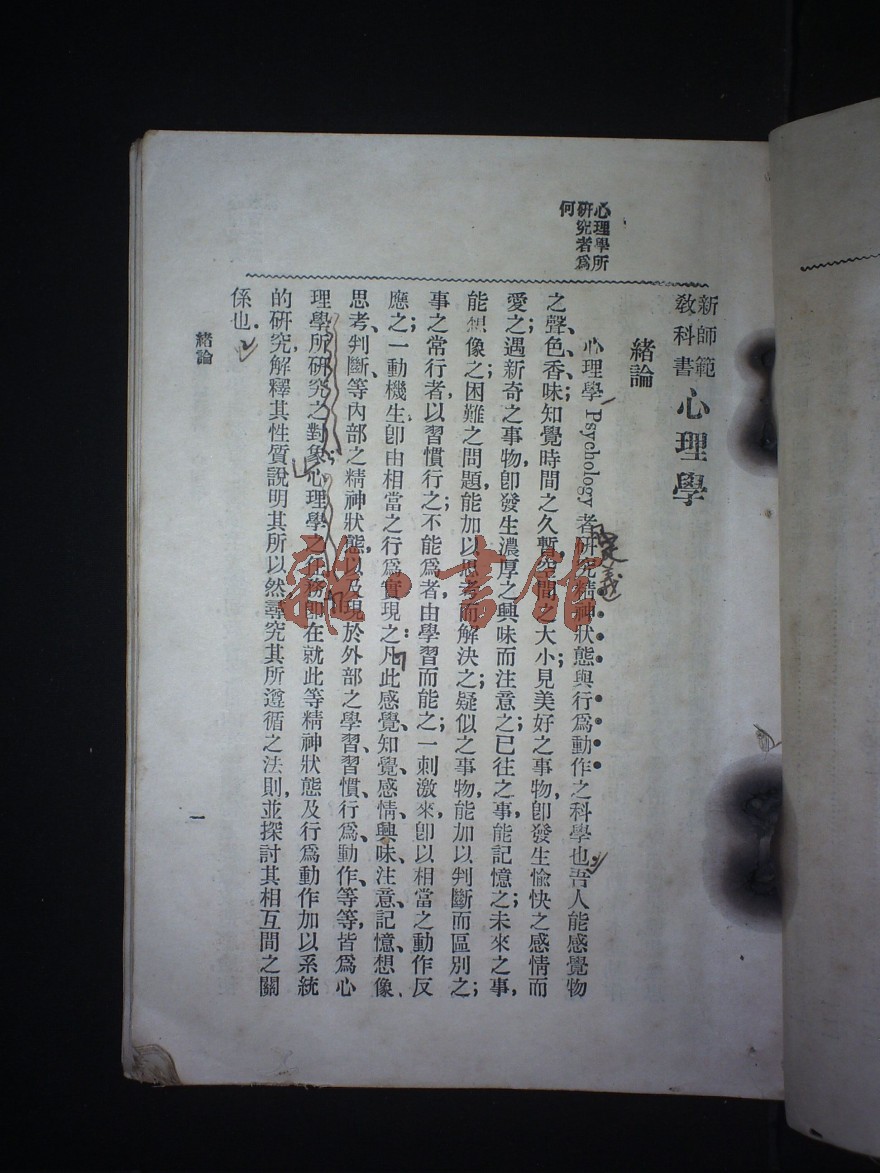 新師範
教科書
心理學
緒論
心理學所
研究者爲
何
心理學 Psychology 者研究精神狀態與行爲動作之科學也吾人能感覺物
之聲、色、香、味知覺時間之久暫、空間之大小;見美好之事物,卽發生愉快之感情而
愛之;遇新奇之事物,卽發生濃厚之興味而注意之;已往之事,能記憶之;未來之事,
能想像之;困難之問題,能加以思考而解決之;疑似之事物,能加以判斷而區別之;
事之常行者,以習慣行之;不能爲者,由學習而能之;一刺激來,卽以相當之動作反
應之;一動機生,卽由相當之行爲實現之:凡此感覺、知覺、感情、興味、注意、記憶、想像、
思考、判斷、等內部之精神狀態,以及現於外部之學習、習慣、行爲、動作、等等,皆爲心
理學所研究之對象;心理學之任務,卽在就此等精神狀態及行爲動作加以系統
的研究,解釋其性質,說明其所以然,尋究其所遵循之法則,並探討其相互間之關
係也.
定義
緒論
一
雜·書館